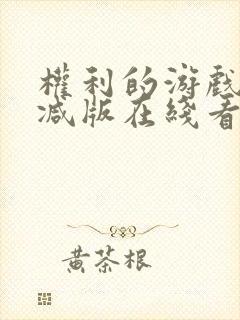 權利的游戲
减版在綫看
黄茶根